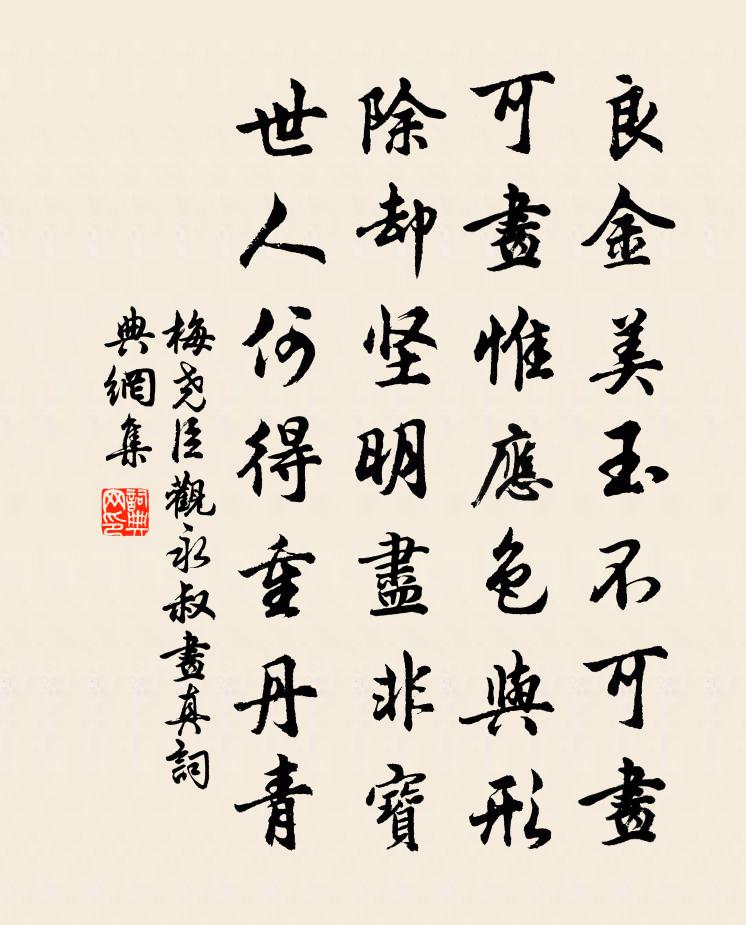 良金美玉不可畫
可畫惟應色與形
除却坚明盡非寶
世人何得重丹青
梅尧臣觀永叔畫真詞
典網集
詞典
网印